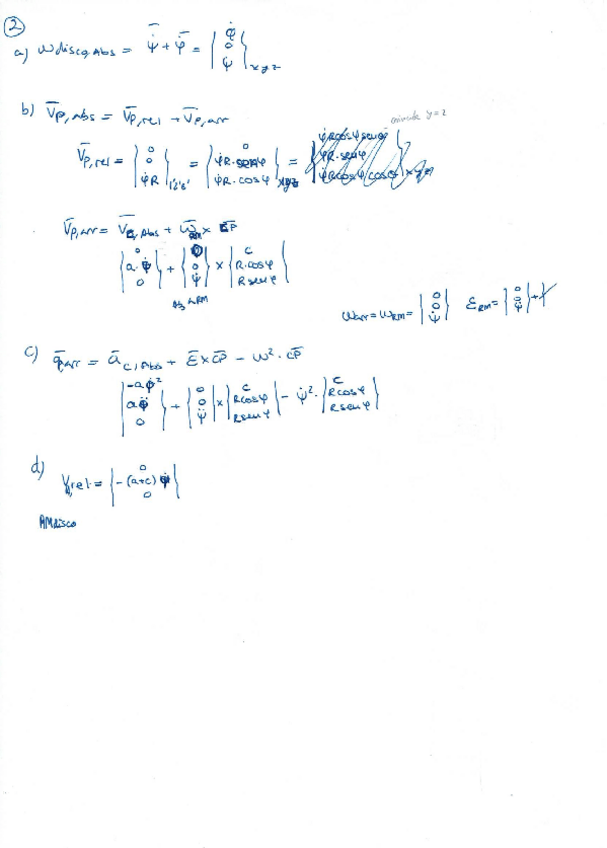 ②
a) ω disco, Abs = ψ̇ + φ̇ = | φ̇ 0 ψ̇ | xyz
b) V̄p,Abs = V̄p,rel + V̄p,arr
V̄p,rel = | 0 0 φ̇R | 1's's' = | 0 φ̇R·senφ φ̇R·cosφ | xyz =
V̄p,arr = V̄c,Abs + ω̄RM × CP
| 0 a·ψ̇ 0 | + | 0 0 ψ̇ | × | c R·cosφ R senφ |
ωarr = ωRM = | 0 0 ψ̇ | εRM = | 0 0 ψ̈ | +
c) āarr = āc,Abs + ε̄ × c̄p̄ - ω² · c̄p̄
| -aψ̇² aψ̈ 0 | + | 0 0 ψ̈ | × | c Rcosφ Rsenφ | - ψ̇² · | c Rcosφ Rsenφ |
d) Vrel = | 0 -(a+c) ψ̇ 0 |
AMdisco